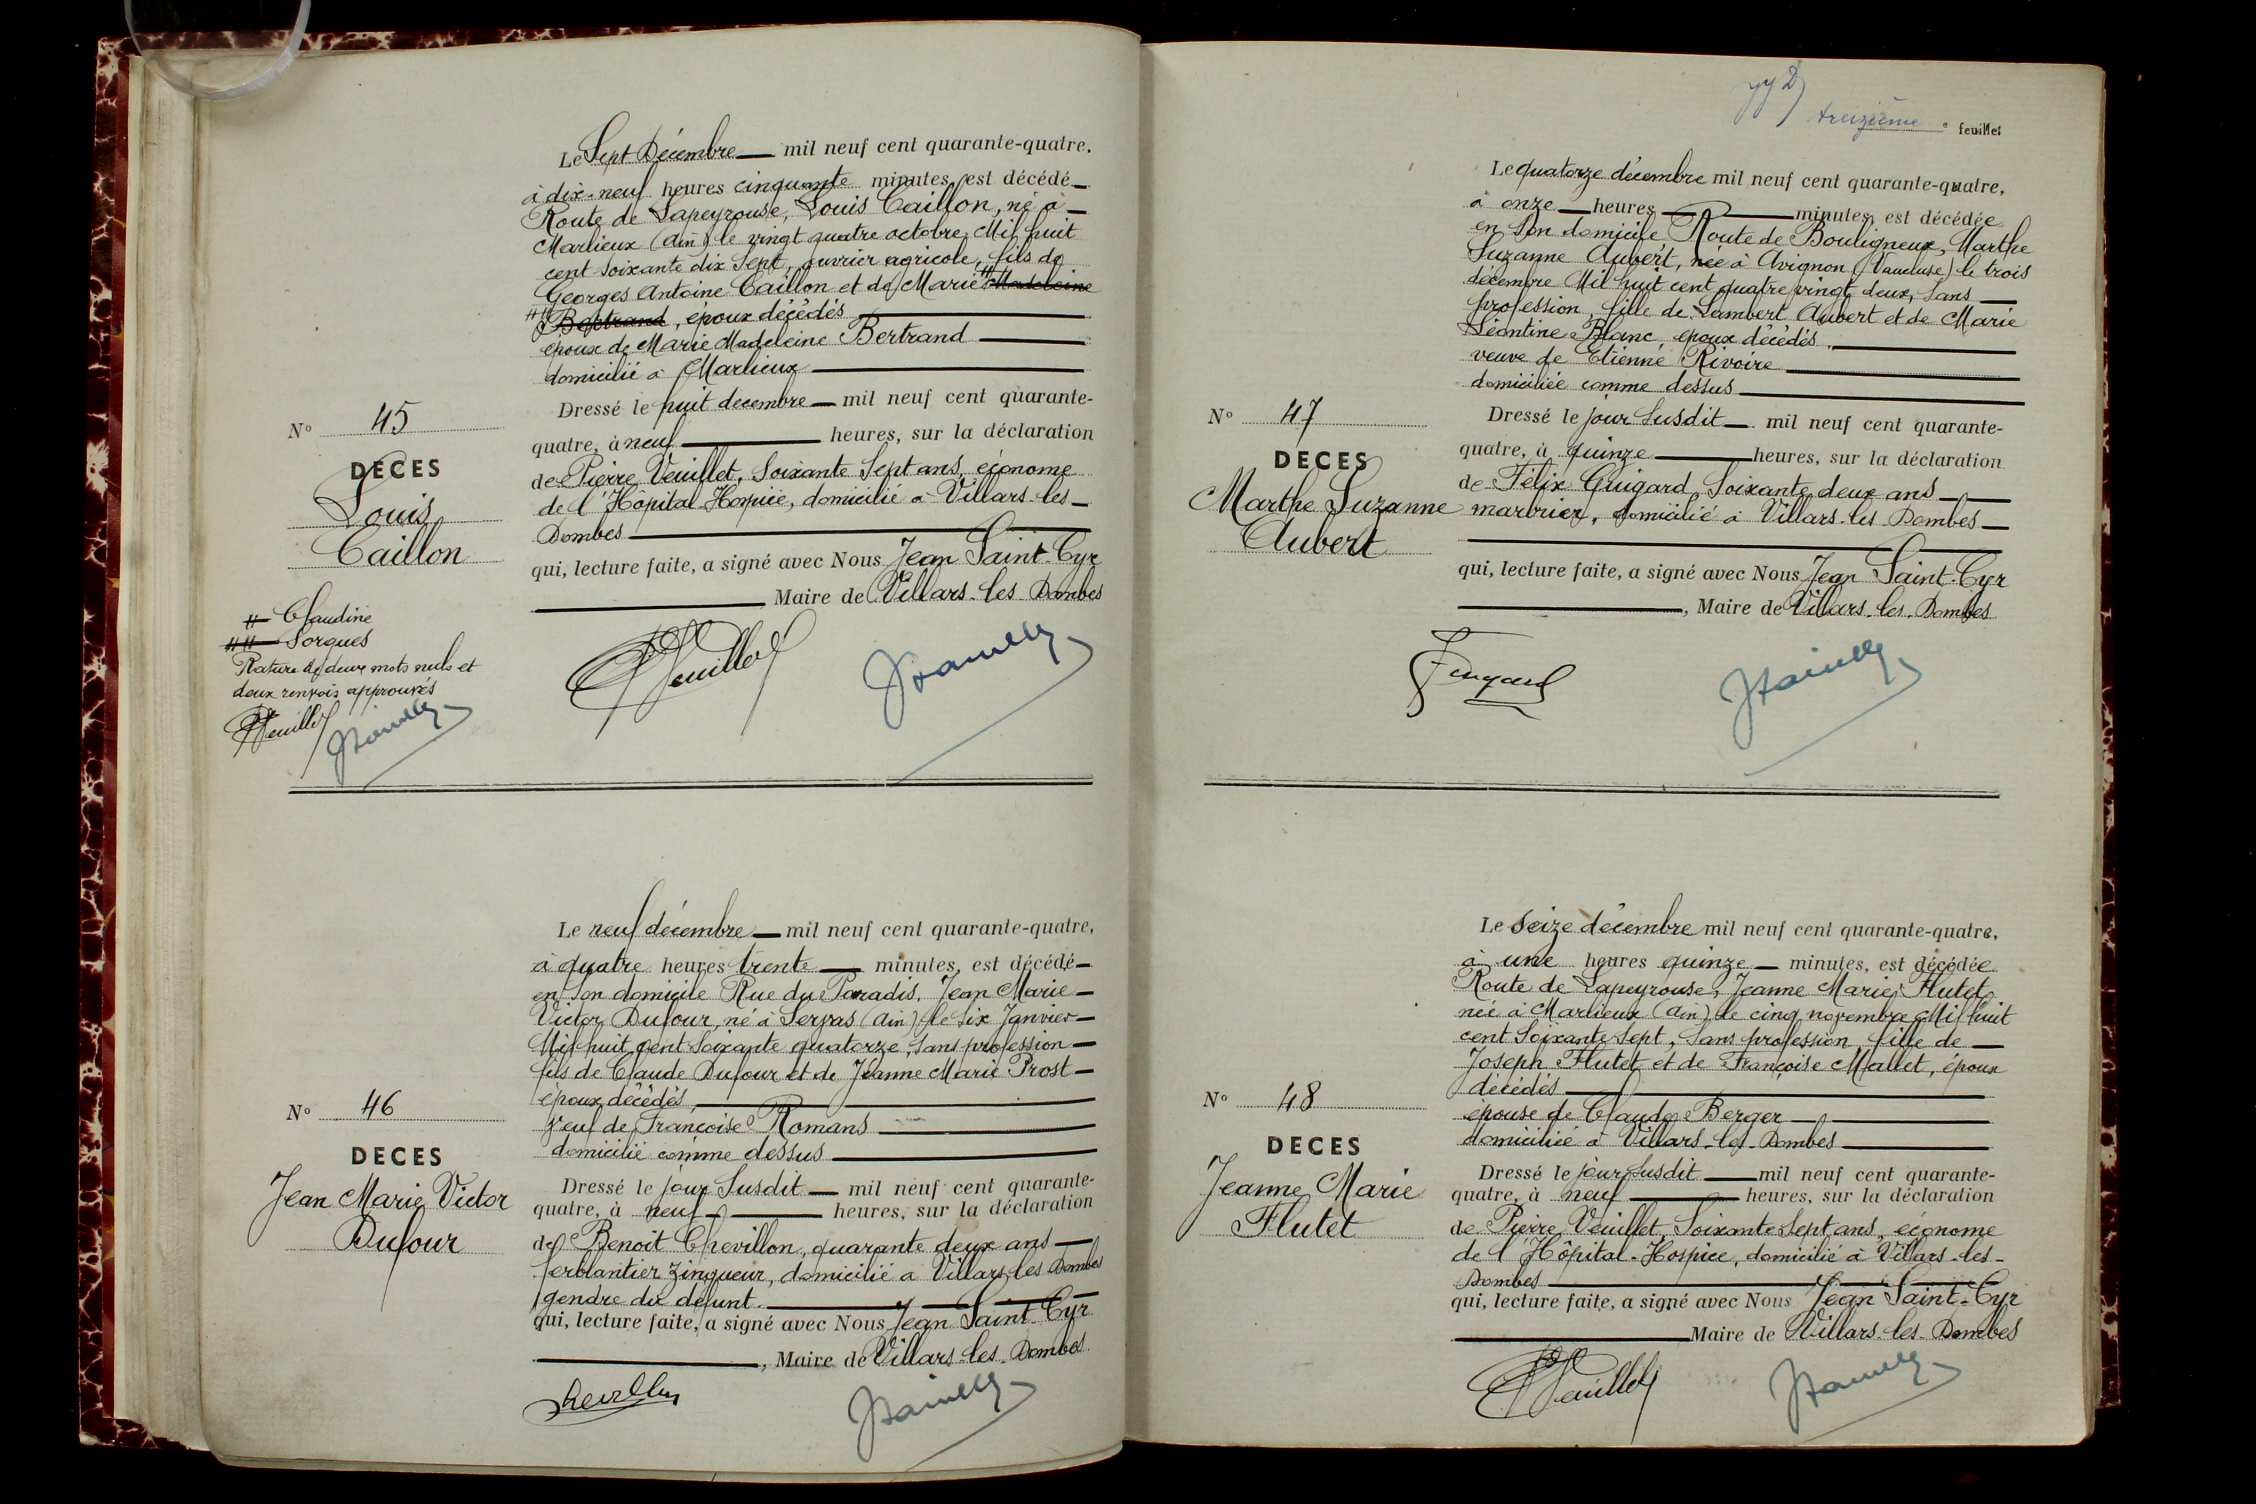 Le Sept Décembre mil neuf cent quarante-quatre,
à dix-neuf heures cinquante minutes, est décédé
Route de Lapeyrouse, Louis Caillon, né à
Marlieux (Ain) le vingt quatre octobre Mil huit
cent soixante dix Sept, ouvrier agricole, fils de
Georges Antoine Caillon et de Marie # Madeleine
## Bertrand, époux décédés
époux de Marie Madeleine Bertrand
domicilié à Marlieux
Dressé le huit décembre mil neuf cent quarante-
quatre, à neuf heures, sur la déclaration
de Pierre Veuillet, Soixante Sept ans, économe
de l'Hôpital-Hospice, domicilié à Villars-les-
Dombes
qui, lecture faite, a signé avec Nous Jean Saint-Cyr
Maire de Villars-les-Dombes
N° 45
DECES
Louis
Caillon
# Claudine
## Sorgues
Rature de deux mots nuls et
deux renvois approuvés
Le neuf décembre mil neuf cent quarante-quatre,
à quatre heures trente minutes, est décédé
en Son domicile Rue du Paradis, Jean Marie
Victor Dufour, né à Servas (Ain) le Six Janvier
Mil huit cent Soixante quatorze, Sans profession
fils de Claude Dufour et de Jeanne Marie Prost
époux décédés,
Veuf de Françoise Romans
domicilié comme dessus
Dressé le jour Susdit mil neuf cent quarante-
quatre, à neuf heures, sur la déclaration
de Benoit Chevillon, quarante deux ans
ferblantier zingueur, domicilié à Villars les Dombes
gendre du défunt.
qui, lecture faite, a signé avec Nous Jean Saint-Cyr
, Maire de Villars-les-Dombes
N° 46
DECES
Jean Marie Victor
Dufour
treizième feuillet
Le quatorze décembre mil neuf cent quarante-quatre,
à onze heures minutes, est décédée
en Son domicile Route de Bouligneux, Marthe
Suzanne Aubert, née à Avignon (Vaucluse) le trois
décembre Mil huit cent quatre vingt deux, Sans
profession, fille de Lambert Aubert et de Marie
Léontine Blanc, époux décédés
veuve de Etienne Rivoire
domiciliée comme dessus
Dressé le jour Susdit mil neuf cent quarante-
quatre, à quinze heures, sur la déclaration
de Félix Guigard, Soixante deux ans
marbrier, domicilié à Villars-les-Dombes
qui, lecture faite, a signé avec Nous Jean Saint-Cyr
, Maire de Villars-les-Dombes
N° 47
DECES
Marthe Suzanne
Aubert
Le Seize décembre mil neuf cent quarante-quatre,
à une heures quinze minutes, est décédée
Route de Lapeyrouse, Jeanne Marie Flutet
née à Marlieux (Ain) le cinq novembre Mil huit
cent Soixante Sept, Sans profession, fille de
Joseph Flutet et de Françoise Mallet, époux
décédés
épouse de Claude Berger
domiciliée à Villars-les-Dombes
Dressé le jour Susdit mil neuf cent quarante-
quatre, à neuf heures, sur la déclaration
de Pierre Veuillet, Soixante Sept ans, économe
de l'Hôpital-Hospice, domicilié à Villars-les-
Dombes
qui, lecture faite, a signé avec Nous Jean Saint-Cyr
Maire de Villars-les-Dombes
N° 48
DECES
Jeanne Marie
Flutet